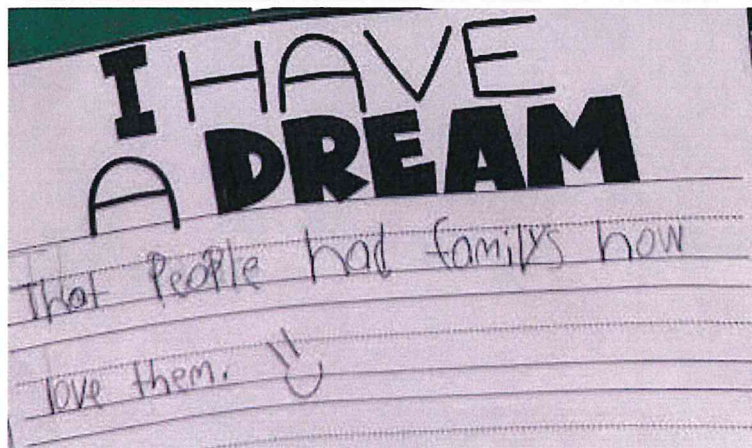 I HAVE
A DREAM
that People had familys how
love them.